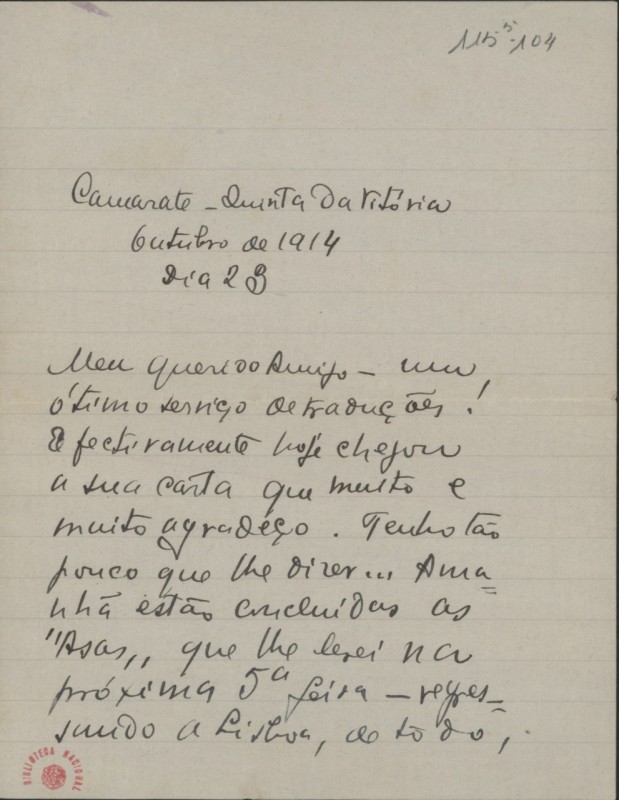 115⁵-104
Camarate - Quinta da Vitória
Outubro de 1914
Dia 23
Meu querido Amigo - um
ótimo serviço de traduções!
Efectivamente hoje chegou
a sua carta que muito e
muito agradéço. Tenho tão
pouco que lhe dizer... Ama=
nhã estão concluidas as
"Asas„ que lhe lerei na
próxima 5ª feira - regres=
sando a Lisboa, de tôdo,
BIBLIOTECA NACIONAL